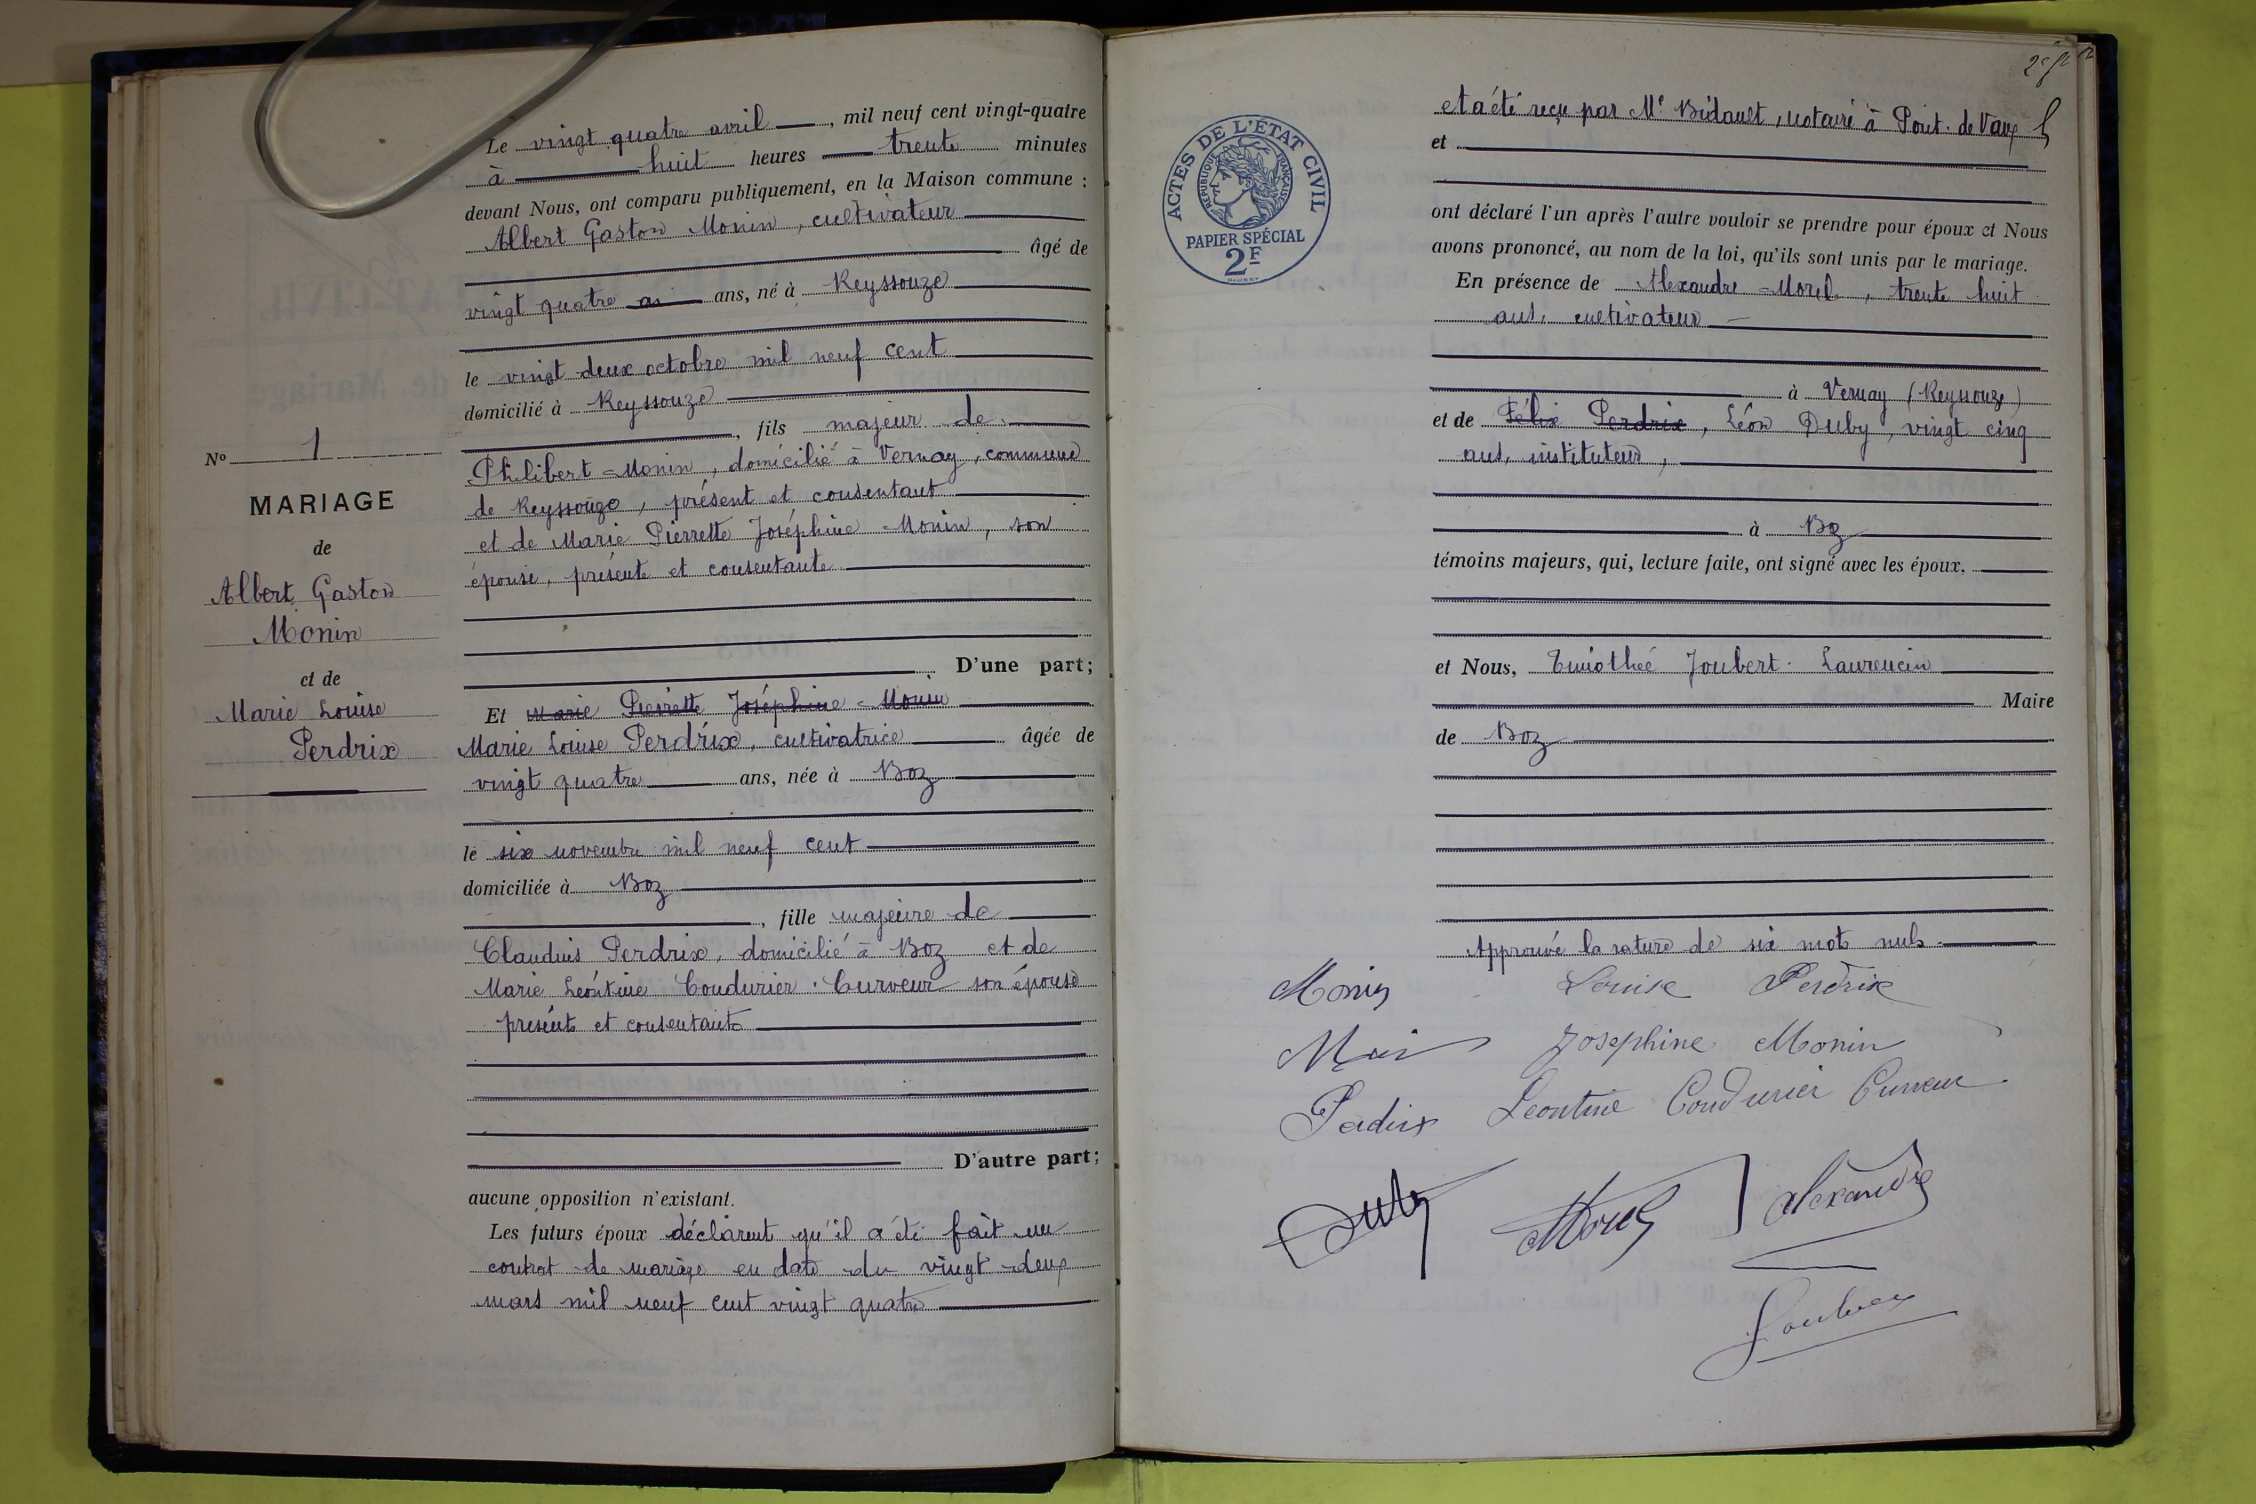 Le vingt quatre avril, mil neuf cent vingt-quatre
à huit heures trente minutes
devant Nous, ont comparu publiquement, en la Maison commune :
Albert Gaston Monin, cultivateur
âgé de
vingt quatre ans, né à Reyssouze
le vingt deux octobre mil neuf cent
domicilié à Reyssouze
, fils majeur de
Nº 1
MARIAGE
de
Albert Gaston
Monin
et de
Marie Louise
Perdrix
Philibert Monin, domicilié à Vernay, commune
de Reyssouze, présent et consentant
et de Marie Pierrette Joséphine Monin, son
épouse, présente et consentante
D'une part;
Et Marie Pierrette Joséphine Monin
Marie Louise Perdrix, cultivatrice âgée de
vingt quatre ans, née à Boz
le six novembre mil neuf cent
domiciliée à Boz
, fille majeure de
Claudius Perdrix, domicilié à Boz et de
Marie Léontine Coudurier Curveur son épouse
présents et consentants
D'autre part;
aucune opposition n'existant.
Les futurs époux déclarent qu'il a été fait un
contrat de mariage en date du vingt deux
mars mil neuf cent vingt quatre
et a été reçu par Me Bidault, notaire à Pont de Vaux
et
ACTES DE L'ÉTAT CIVIL
RÉPUBLIQUE FRANÇAISE
PAPIER SPÉCIAL
2F
ont déclaré l'un après l'autre vouloir se prendre pour époux et Nous
avons prononcé, au nom de la loi, qu'ils sont unis par le mariage.
En présence de Alexandre Morel, trente huit
ans, cultivateur
à Vernay (Reyssouze)
et de Félix Perdrix, Léon Duby, vingt cinq
ans, instituteur,
à Boz
témoins majeurs, qui, lecture faite, ont signé avec les époux,
et Nous, Timothée Joubert Laurencin
Maire
de Boz
Approuvé la rature de six mots nuls.
Monin Louise Perdrix
Monin Joséphine Monin
Perdrix Léontine Coudurier Curveur
Duby Morel Alexandre
Joubert